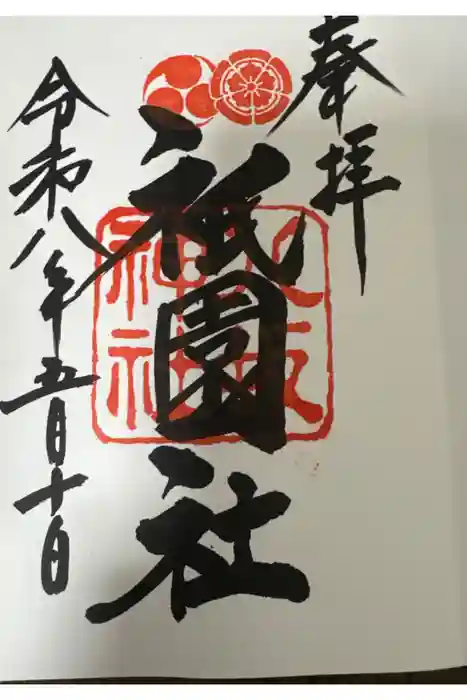 奉拝
祇園社
八坂神社
令和八年五月十日